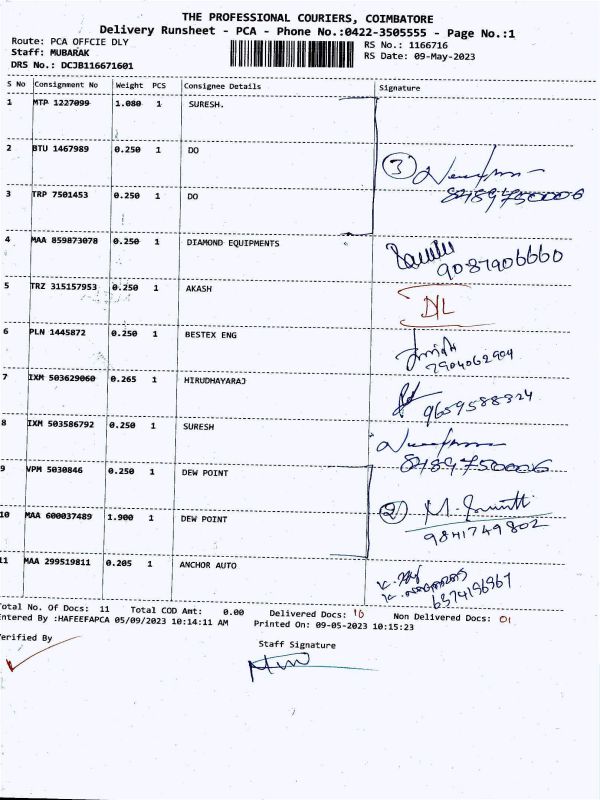 THE PROFESSIONAL COURIERS, COIMBATORE
Delivery Runsheet - PCA - Phone No.:0422-3505555 - Page No.:1
Route: PCA OFFCIE DLY
Staff: MUBARAK
DRS No.: DCJB116671601
RS No.: 1166716
RS Date: 09-May-2023
S No Consignment No Weight PCS Consignee Details Signature
1 MTP 1227099 1.080 1 SURESH.
2 BTU 1467989 0.250 1 DO
3
8489750006
3 TRP 7501453 0.250 1 DO
4 MAA 859873078 0.250 1 DIAMOND EQUIPMENTS
9087906660
5 TRZ 315157953 0.250 1 AKASH
D/L
6 PLN 1445872 0.250 1 BESTEX ENG
7904062904
7 IXM 503629060 0.265 1 HIRUDHAYARAJ
9659588324
8 IXM 503586792 0.250 1 SURESH
8489750006
9 VPM 5030846 0.250 1 DEW POINT
2
10 MAA 600037489 1.900 1 DEW POINT
9841749802
11 MAA 299519811 0.205 1 ANCHOR AUTO
6374196967
Total No. Of Docs: 11 Total COD Amt: 0.00 Delivered Docs: 10 Non Delivered Docs: 01
Entered By :HAFEEFAPCA 05/09/2023 10:14:11 AM Printed On: 09-05-2023 10:15:23
Verified By
Staff Signature